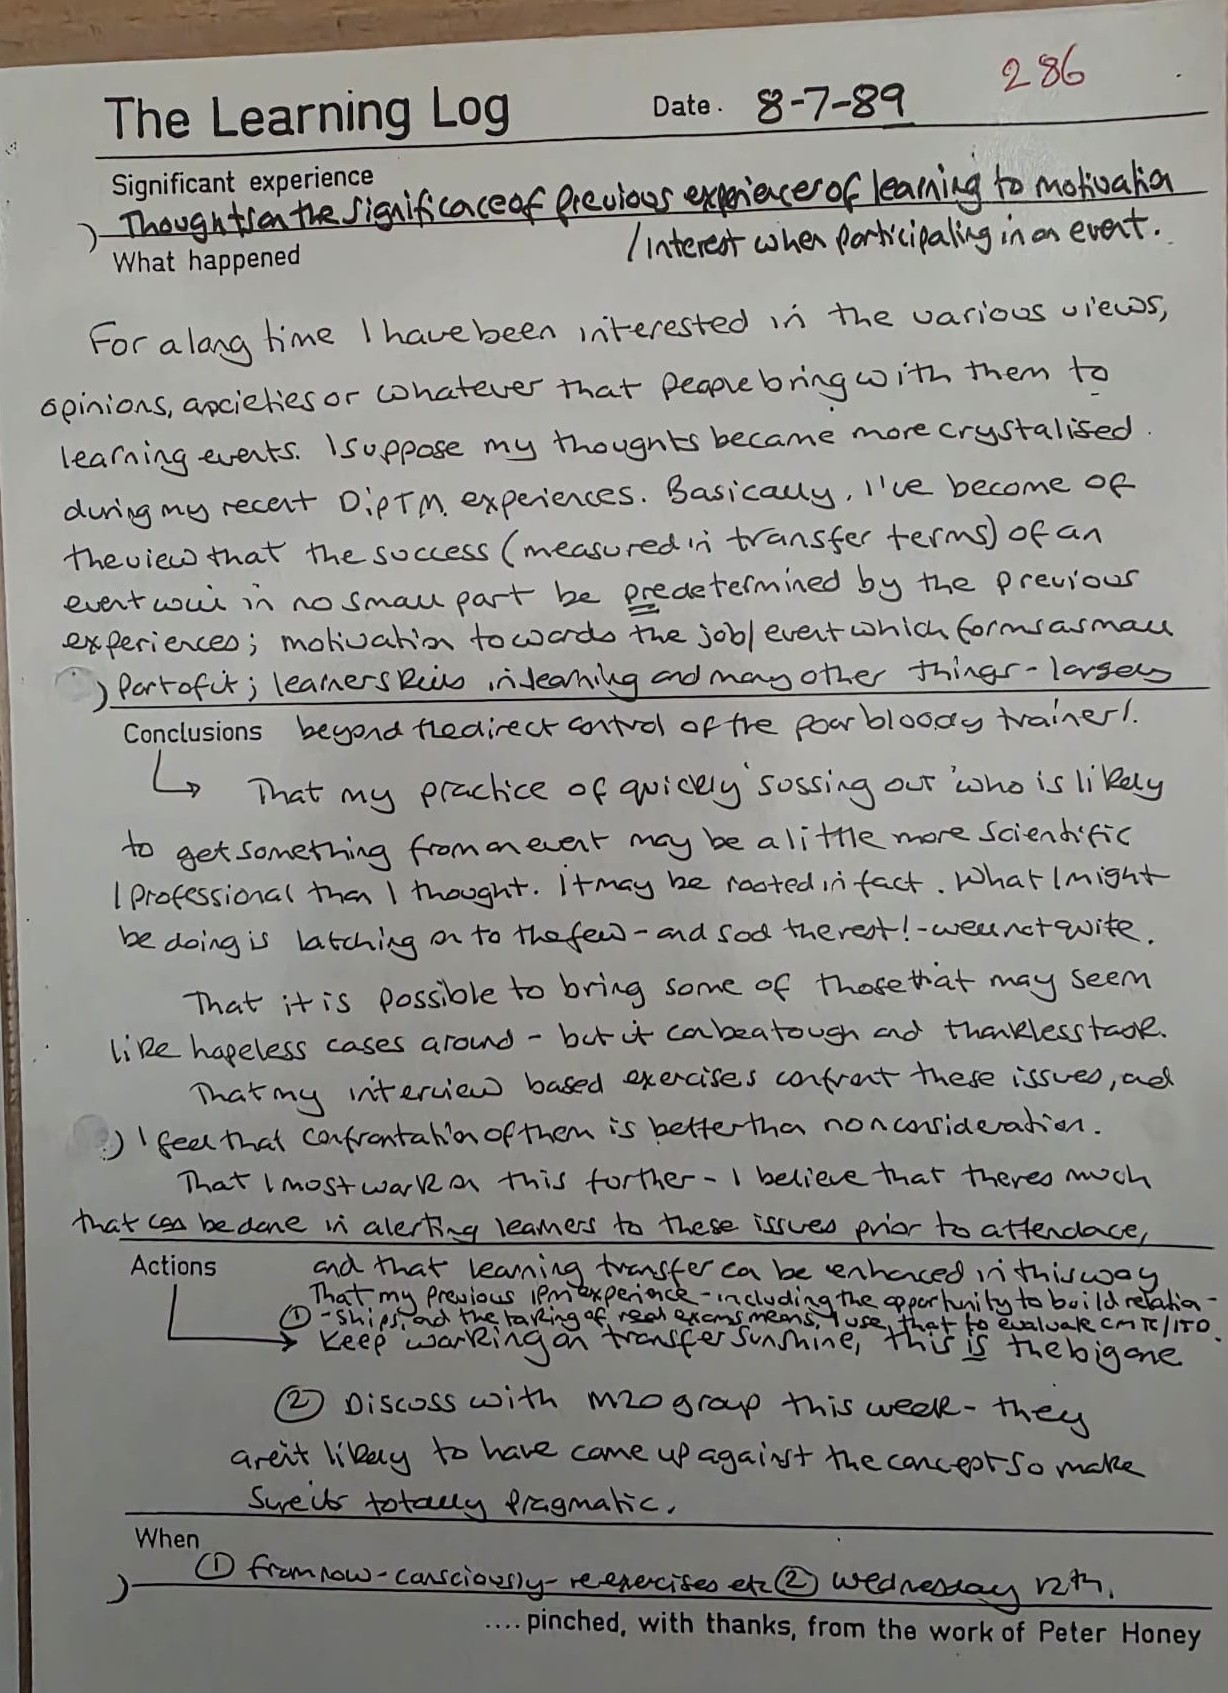 286
The Learning Log Date. 8-7-89
Significant experience
Thoughts on the significace of previous experiences of learning to motivation
What happened / interest when participating in an event.
For a long time I have been interested in the various views,
opinions, axcieties or whatever that people bring with them to
learning events. I suppose my thoughts became more crystalised
during my recent DipTM. experiences. Basically, I've become of
the view that the success (measured in transfer terms) of an
event will in no small part be predetermined by the previous
experiences; motivation towards the job/event which forms a small
part of it; learners skills in learning and many other things - largely
Conclusions beyond the direct control of the poor bloody trainer!.
That my practice of quickly 'sussing out' who is likely
to get something from an event may be a little more scientific
/ professional than I thought. It may be rooted in fact. What I might
be doing is latching on to the few - and sod the rest! - well not quite.
That it is possible to bring some of those that may seem
like hopeless cases around - but it can be a tough and thankless task.
That my interview based exercises confront these issues, and
I feel that confrontation of them is better than non consideration.
That I must work on this further - I believe that theres much
that can be done in alerting learners to these issues prior to attendace,
Actions and that learning transfer can be enhanced in this way
That my previous IPM experience - including the opportunity to build relation-
-ships, and the taking of real exams means, I use, that to evaluate CMTC/ITO.
① Keep working on transfer sunshine, this is the big one
② Discuss with M20 group this week - they
aren't likely to have come up against the concept so make
sure its totally pragmatic.
When
① from now - consciously - re-exercises etc ② Wednesday 12th.
.... pinched, with thanks, from the work of Peter Honey